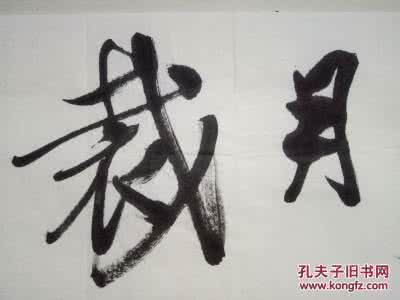 裁月
孔夫子旧书网
www.kongfz.com